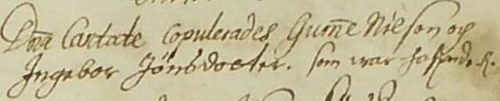 Dnã Cantate Copulerades Gum̃e Nielson och
Ingebor Jönsdotter. som war